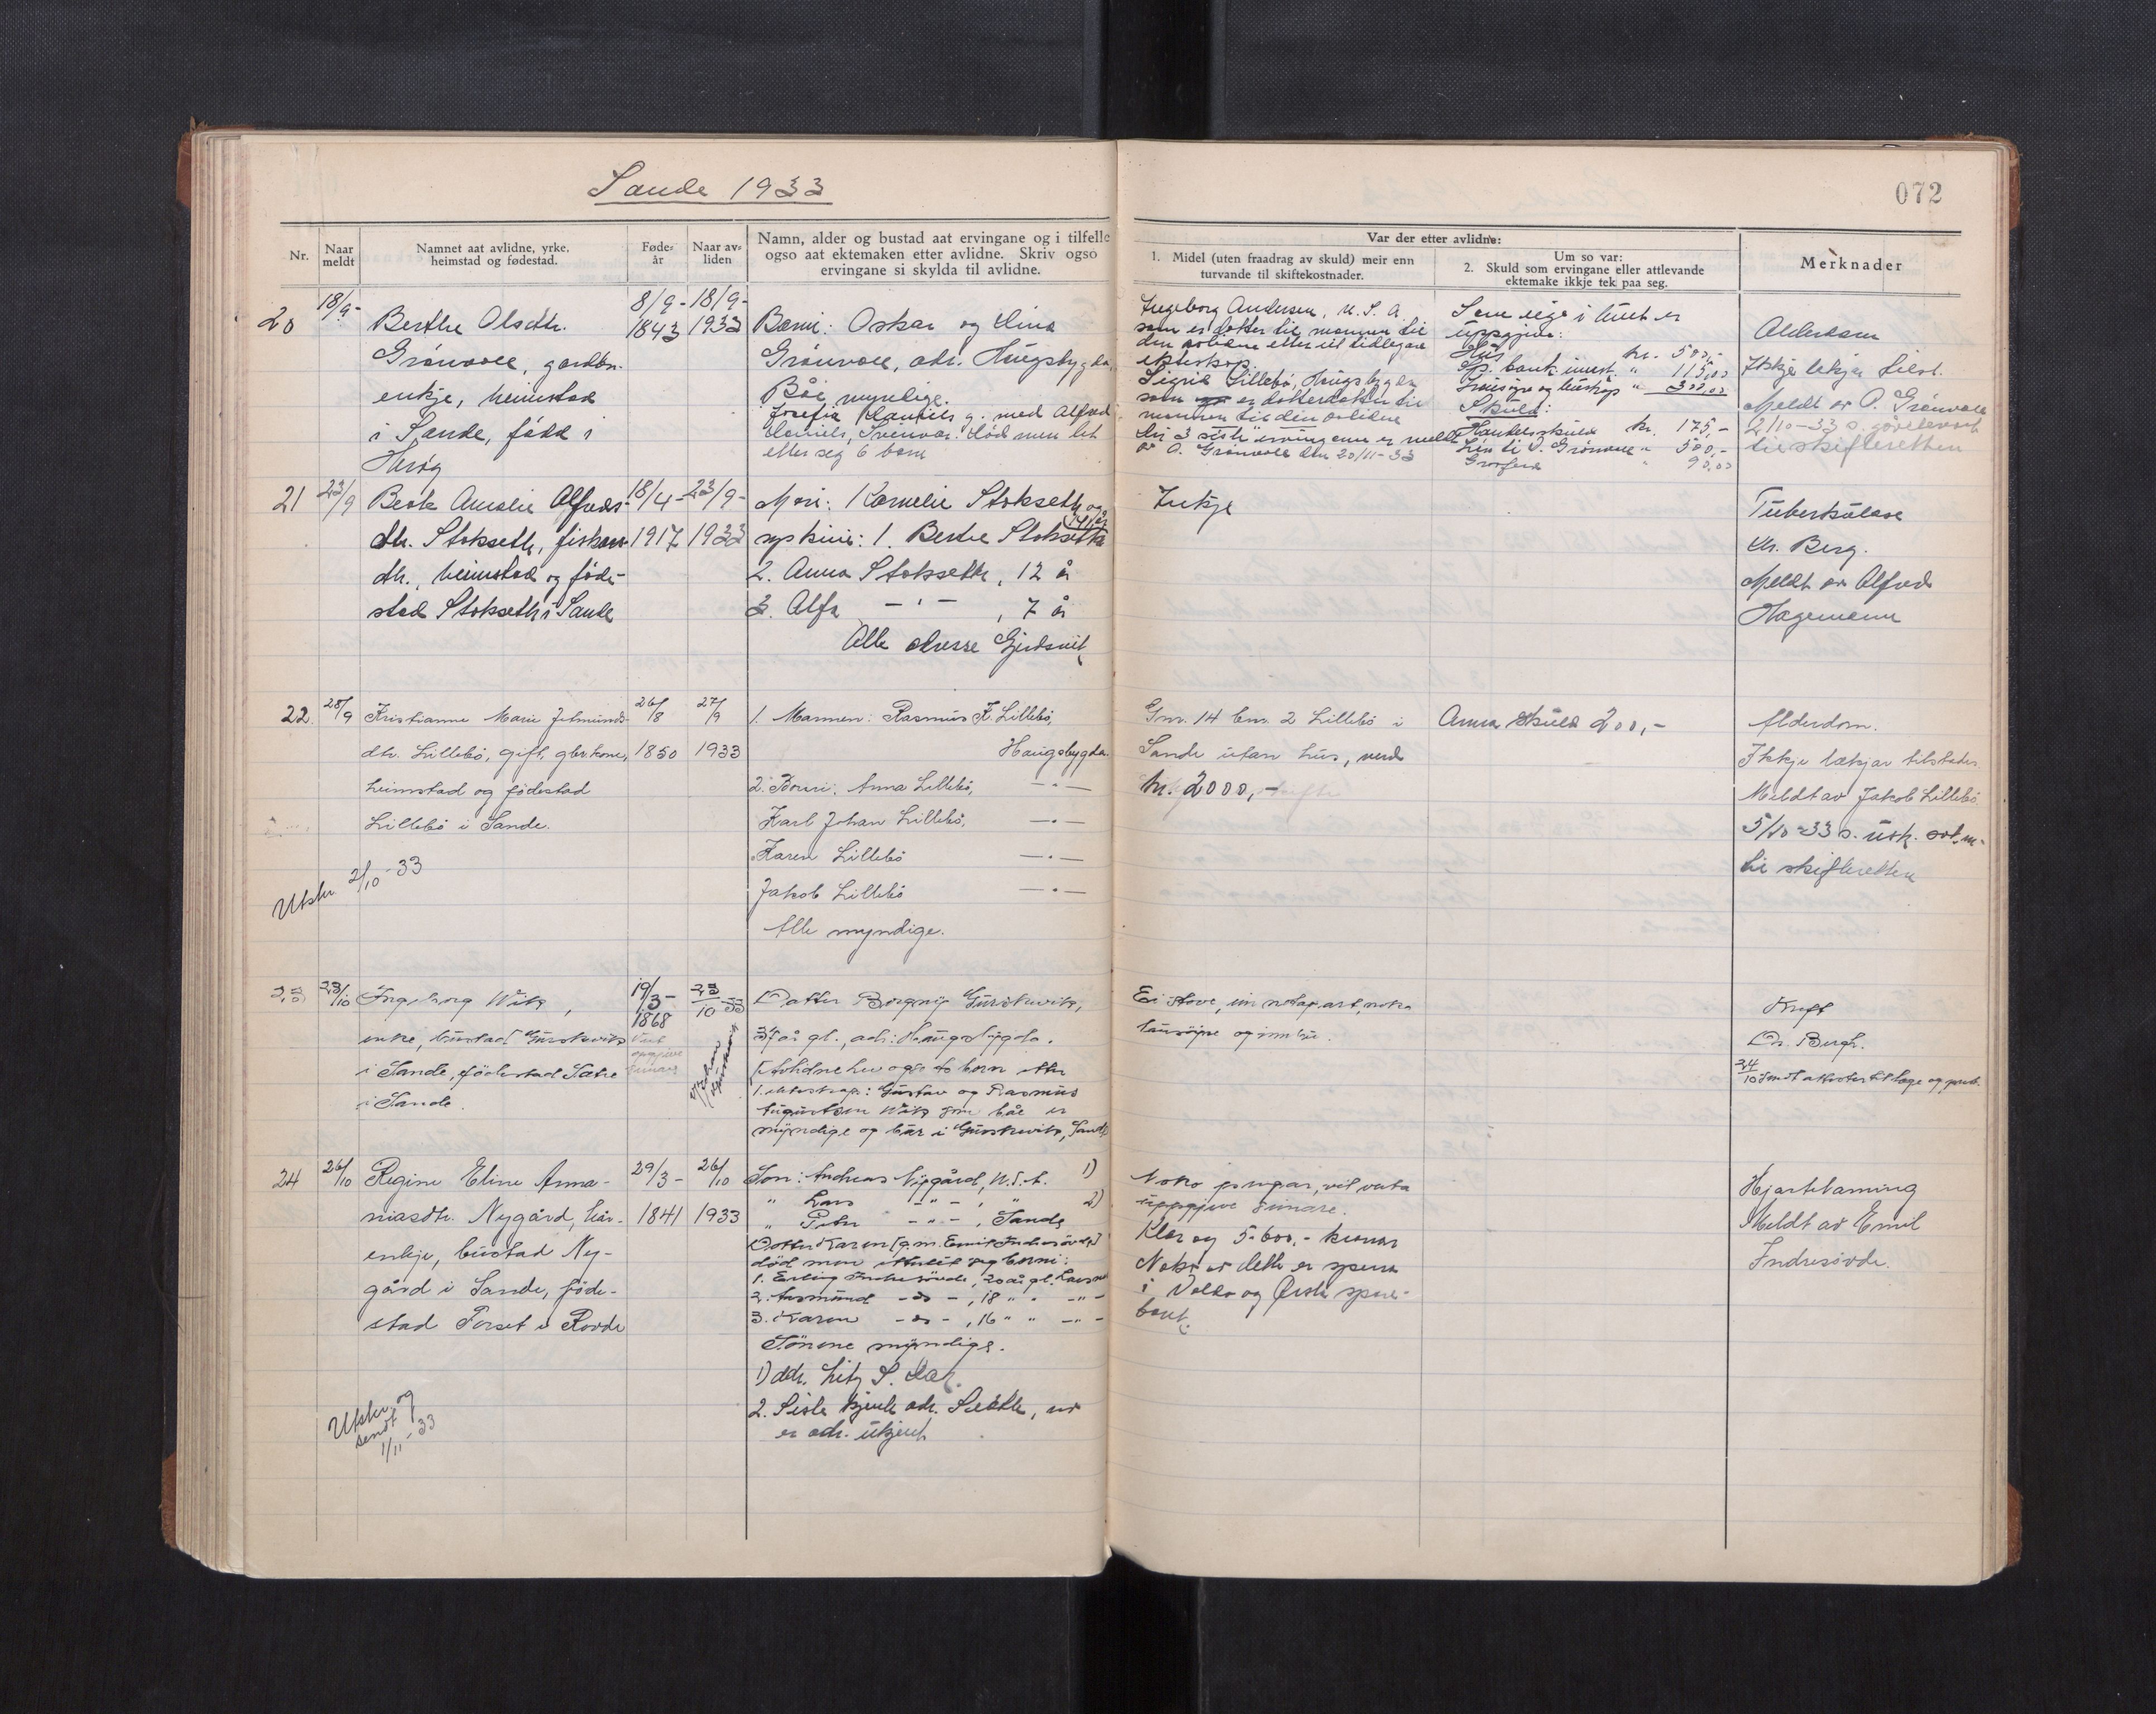 Sande 1933
072
Nr.
Naar meldt
Namnet aat avlidne, yrke. heimstad og fødestad.
Føde-år
Naar av-liden
Namn, alder og bustad aat ervingane og i tilfelle
ogso aat ektemaken etter avlidne. Skriv ogso
ervingane si skylda til avlidne.
Var der etter avlidne:
1. Midel (uten fraadrag av skuld) meir enn
turvande til skiftekostnader.
Um so var:
2. Skuld som ervingane eller attlevande
ektemake ikkje tek paa seg.
Merknader
20
18/9-
Berthe Olsdtr.
Grönvoll, gardbr.
enkje, heimstad
i Sande, född i
Heröy
8/9-
1843
18/9-
1933
Borni: Oskar og Lina
Grönvoll, adr. Haugsbygda,
Båe myndige.
Josefia Daniels g. med Alfred
Daniels, Död men let
etter seg 6 born
Ingeborg Andersen, U.S.A.
som er dotter til mannen til
den avlidne etter eit tidlegare
ekteskap.
Sigrid Lillebö, Haugsbygda
som er dotterdotter til
mannen til den avlidne
Dei 3 siste ervingane er meldt
av O. Grönvoll den 20/11-33
Som eige i buet er
uppgjeve:
Hus kr. 500,-
Sp. bank innst. " 115,00
Lausöyre og buskap " 300,00
Skuld:
Handelsskuld kr. 175,-
Lån til O. Grönvoll " 500,-
Gravferd " 90,00
Alderdom
Ikkje lekjar tilst.
Meldt av O. Grönvoll
2/10-33 s.
til skifteretten
21
23/9
Berte Amalie Alfreds-
dtr. Stokseth, fiskar-
dtr., heimstad og föde-
stad Stokseth i Sande
18/4-
1917
23/9-
1933
Mor: Kornelie Stokseth og
syskin: 1. Berthe Stokseth 14 år
2. Anna Stokseth, 12 år
3. Alfa -"- , 7 år
Alle adresse Gjerdsvik
Inkje
Tuberkulose
Dr. Berg.
Meldt av Alfred
Hagemann
22.
28/9
Kristianne Marie Jetmunds-
dtr. Lillebö, gift, gbr.kone,
heimstad og födestad
Lillebö i Sande.
Utskr. 2/10-33
26/8
1850
27/9
1933
1. Mannen: Rasmus K. Lillebö,
Haugsbygda
2. Borni: Anna Lillebö, -"-
Karl Johan Lillebö, -"-
Karen Lillebö -"-
Jakob Lillebö -"-
Alle myndige.
Gnr. 14 bnr. 2 Lillebö i
Sande utan hus, verd
kr. 2000,-
Anna skuld 200,-
Alderdom.
Ikkje lækjar tilstades
Meldt av Jakob Lillebö
5/10-33 s. usk.
til skifteretten
23
23/10
Ingeborg Wiik,
enke, bustad Gurskevik
i Sande, födestad Sætre
i Sande.
19/3-
1868
Vert
oppgjeve
seinare
23/10 33
Dotter Borgny Gurskevik,
37 år gl., adr: Haugsbygda.
Avlidne hev ogso to born etter
1. ekteskap: Gustav og Rasmus
Augustson Wiik som båe er
myndige og bur i Gurskevik, Sande
Ei stove, ein notapart, noko
lausöyre og innbu.
Kreft
Dr. Bergh.
24/10 Sendt attester til lege og prest.
24
26/10
Regine Eline Anna-
niasdtr. Nygård, kår-
enkje, bustad Ny-
gård i Sande, föde-
stad Forset i Rovde
Utskr. og
sendt
1/11-33
29/3-
1841
26/10
1933
Son: Andreas Nygård, U.S.A. 1)
" Lars -"- , " 2)
" Peter -"- , Sande
Dotter Karen (g.m. Emil Indresövde)
död men etterlet seg borni:
1. Erling Indresövde, 20 år gl.
2. Asmund -do- , 18 " " -"-
3. Karen -do- , 16 " " -"-
Sönene myndige.
1) adr.
2. Siste kjente adr. Seattle, no
er adr. ukjent
Noko pengar, vil verta
uppgjeve seinare.
Klær og 5-600,- kronor
Noko av dette er
i Volda og Örsta spare-
bank.
Hjartelaming
Meldt av Emil
Indresövde.